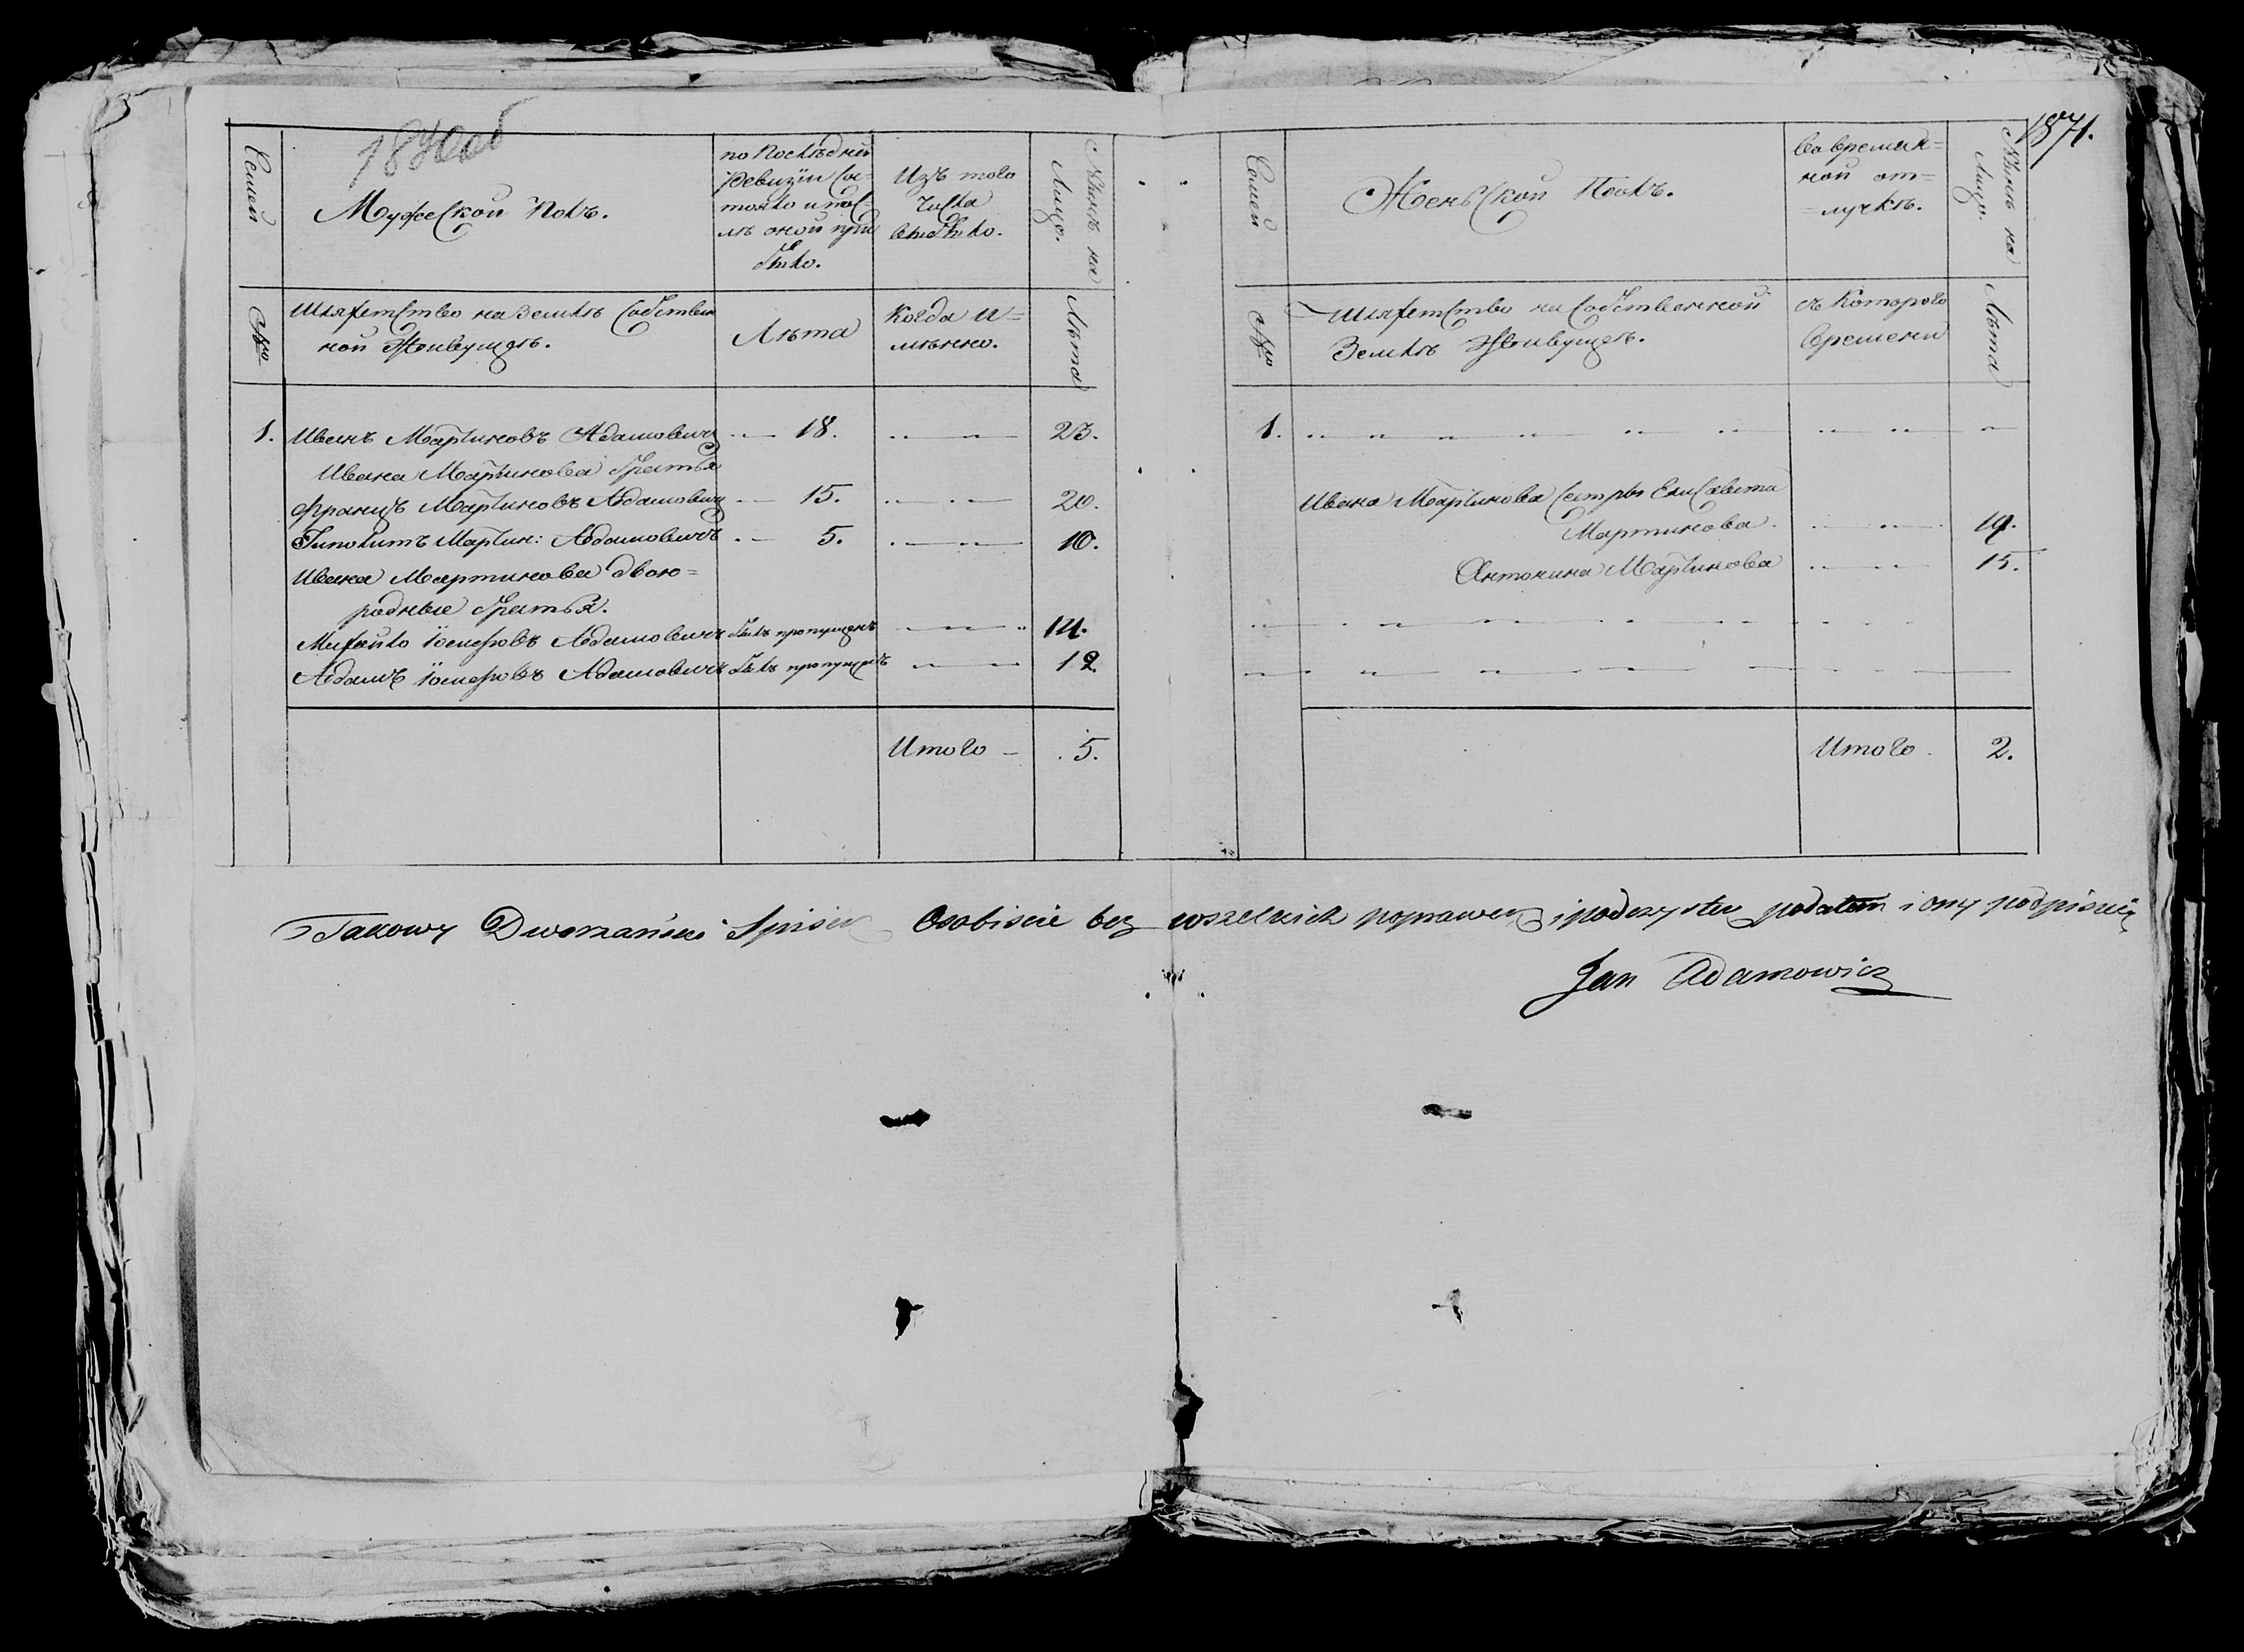 1870об
1871.
Семей
Мужеской Полъ.
по Последней
Ревизіи Со=
стояло и пос=
лѣ оной при
было.
Изъ того
числа
выбыло.
Нынѣ на
Лицо.
№ро
Шляхетство на Землѣ Собствен
ной Живущеѣ.
Лѣта
Когда И=
мѣнно.
Лѣта
1. Иванъ Мартиновъ Адамовичъ 18. 23.
Ивана Мартинова братья
Францъ Мартиновъ Адамовичъ 15. 20.
Гиполитъ Мартин: Адамовичъ 5. 10.
Ивана Мартинова двою=
родные братья.
Михайло Адамовичъ былъ пропущенъ 14.
Адамъ Адамовичъ былъ пропущенъ 12.
Итого 5.
Семей
Женьской Полъ.
Во времян=
ной от=
лучкѣ.
Нынѣ на
Лицо.
№ро
Шляхетство на Собственной
Землѣ Живущеѣ.
съ Которого
Времени
Лѣта
1.
Ивана Мартинова Сестры Елисавета
Мартинова 19.
Антонина Мартинова 15.
Итого 2.
Takowy Dworzański Spisek Osobiscie bez wszelkich poprawek i podczystek podałem i ony podpisuię
Jan Adamowicz